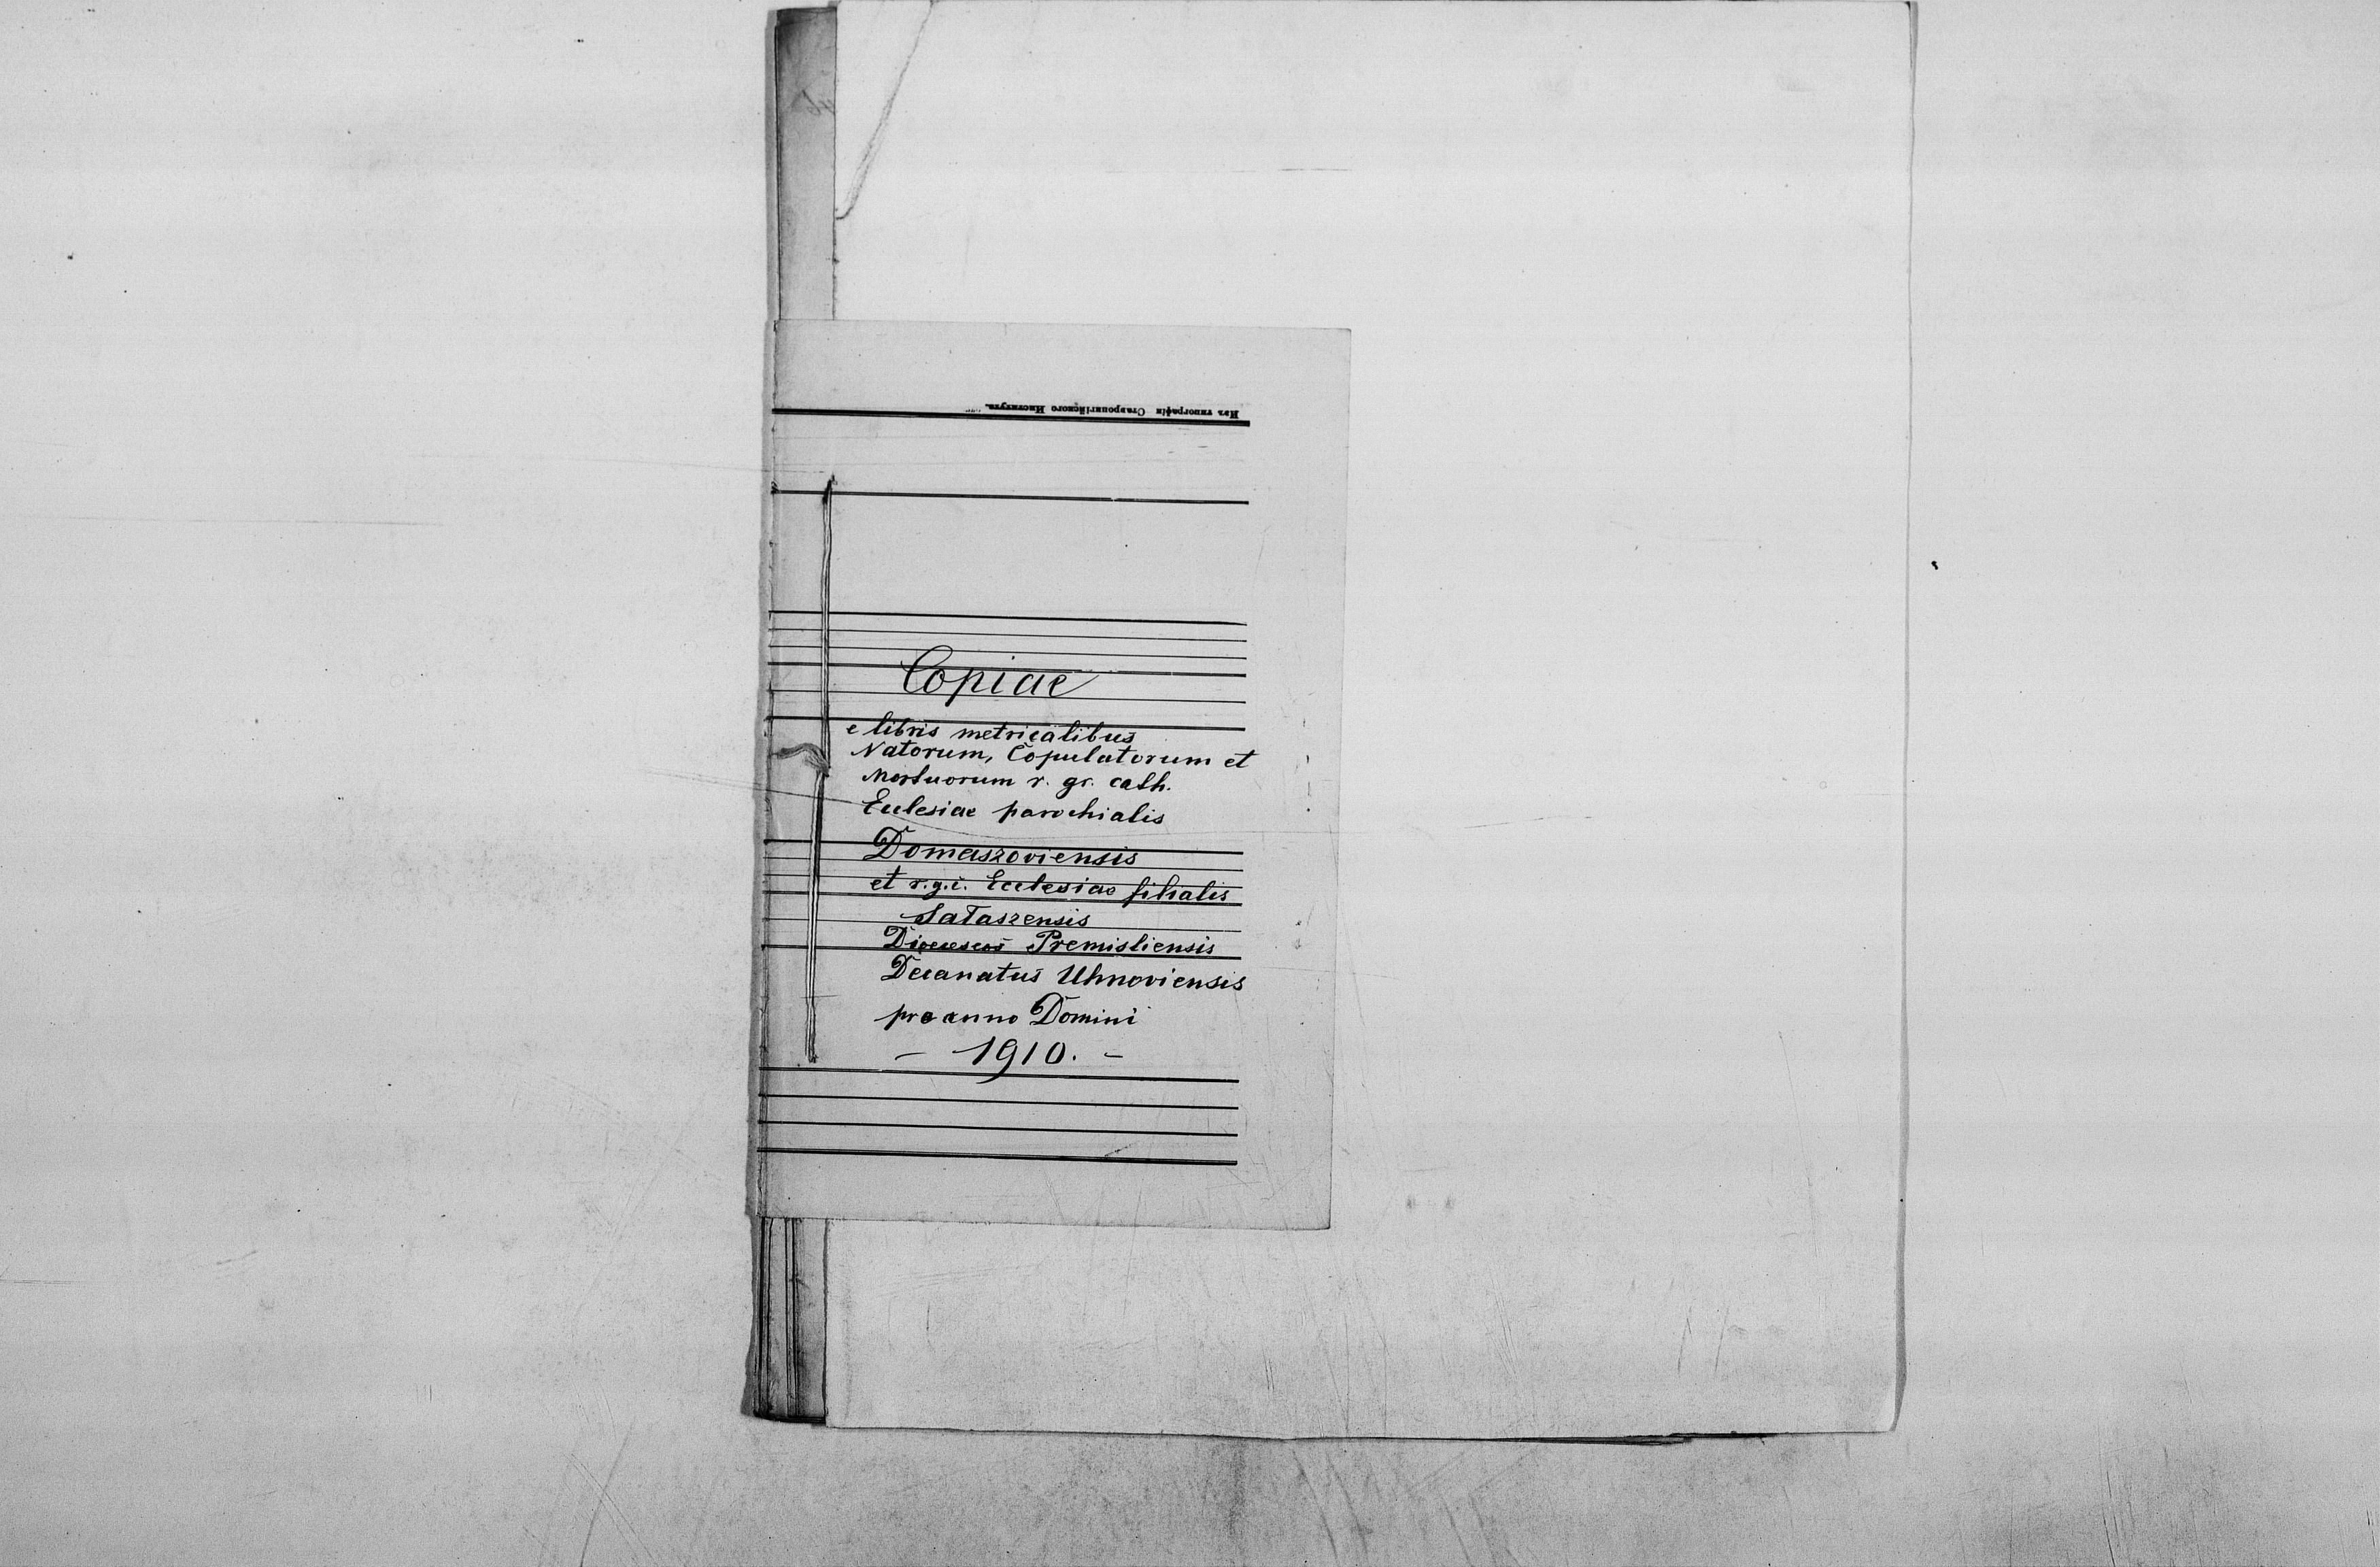 Изъ типографіи Ставропигійского Института.
Copiae
e libris metricalibus
Natorum, Copulatorum et
Mortuorum r. gr. cath.
Ecclesiae parochialis
Domaszoviensis
et r. g. c. Ecclesiae filialis
Sałaszensis
Dioeceseos Premisliensis
Decanatus Uhnoviensis
pro anno Domini
- 1910. -